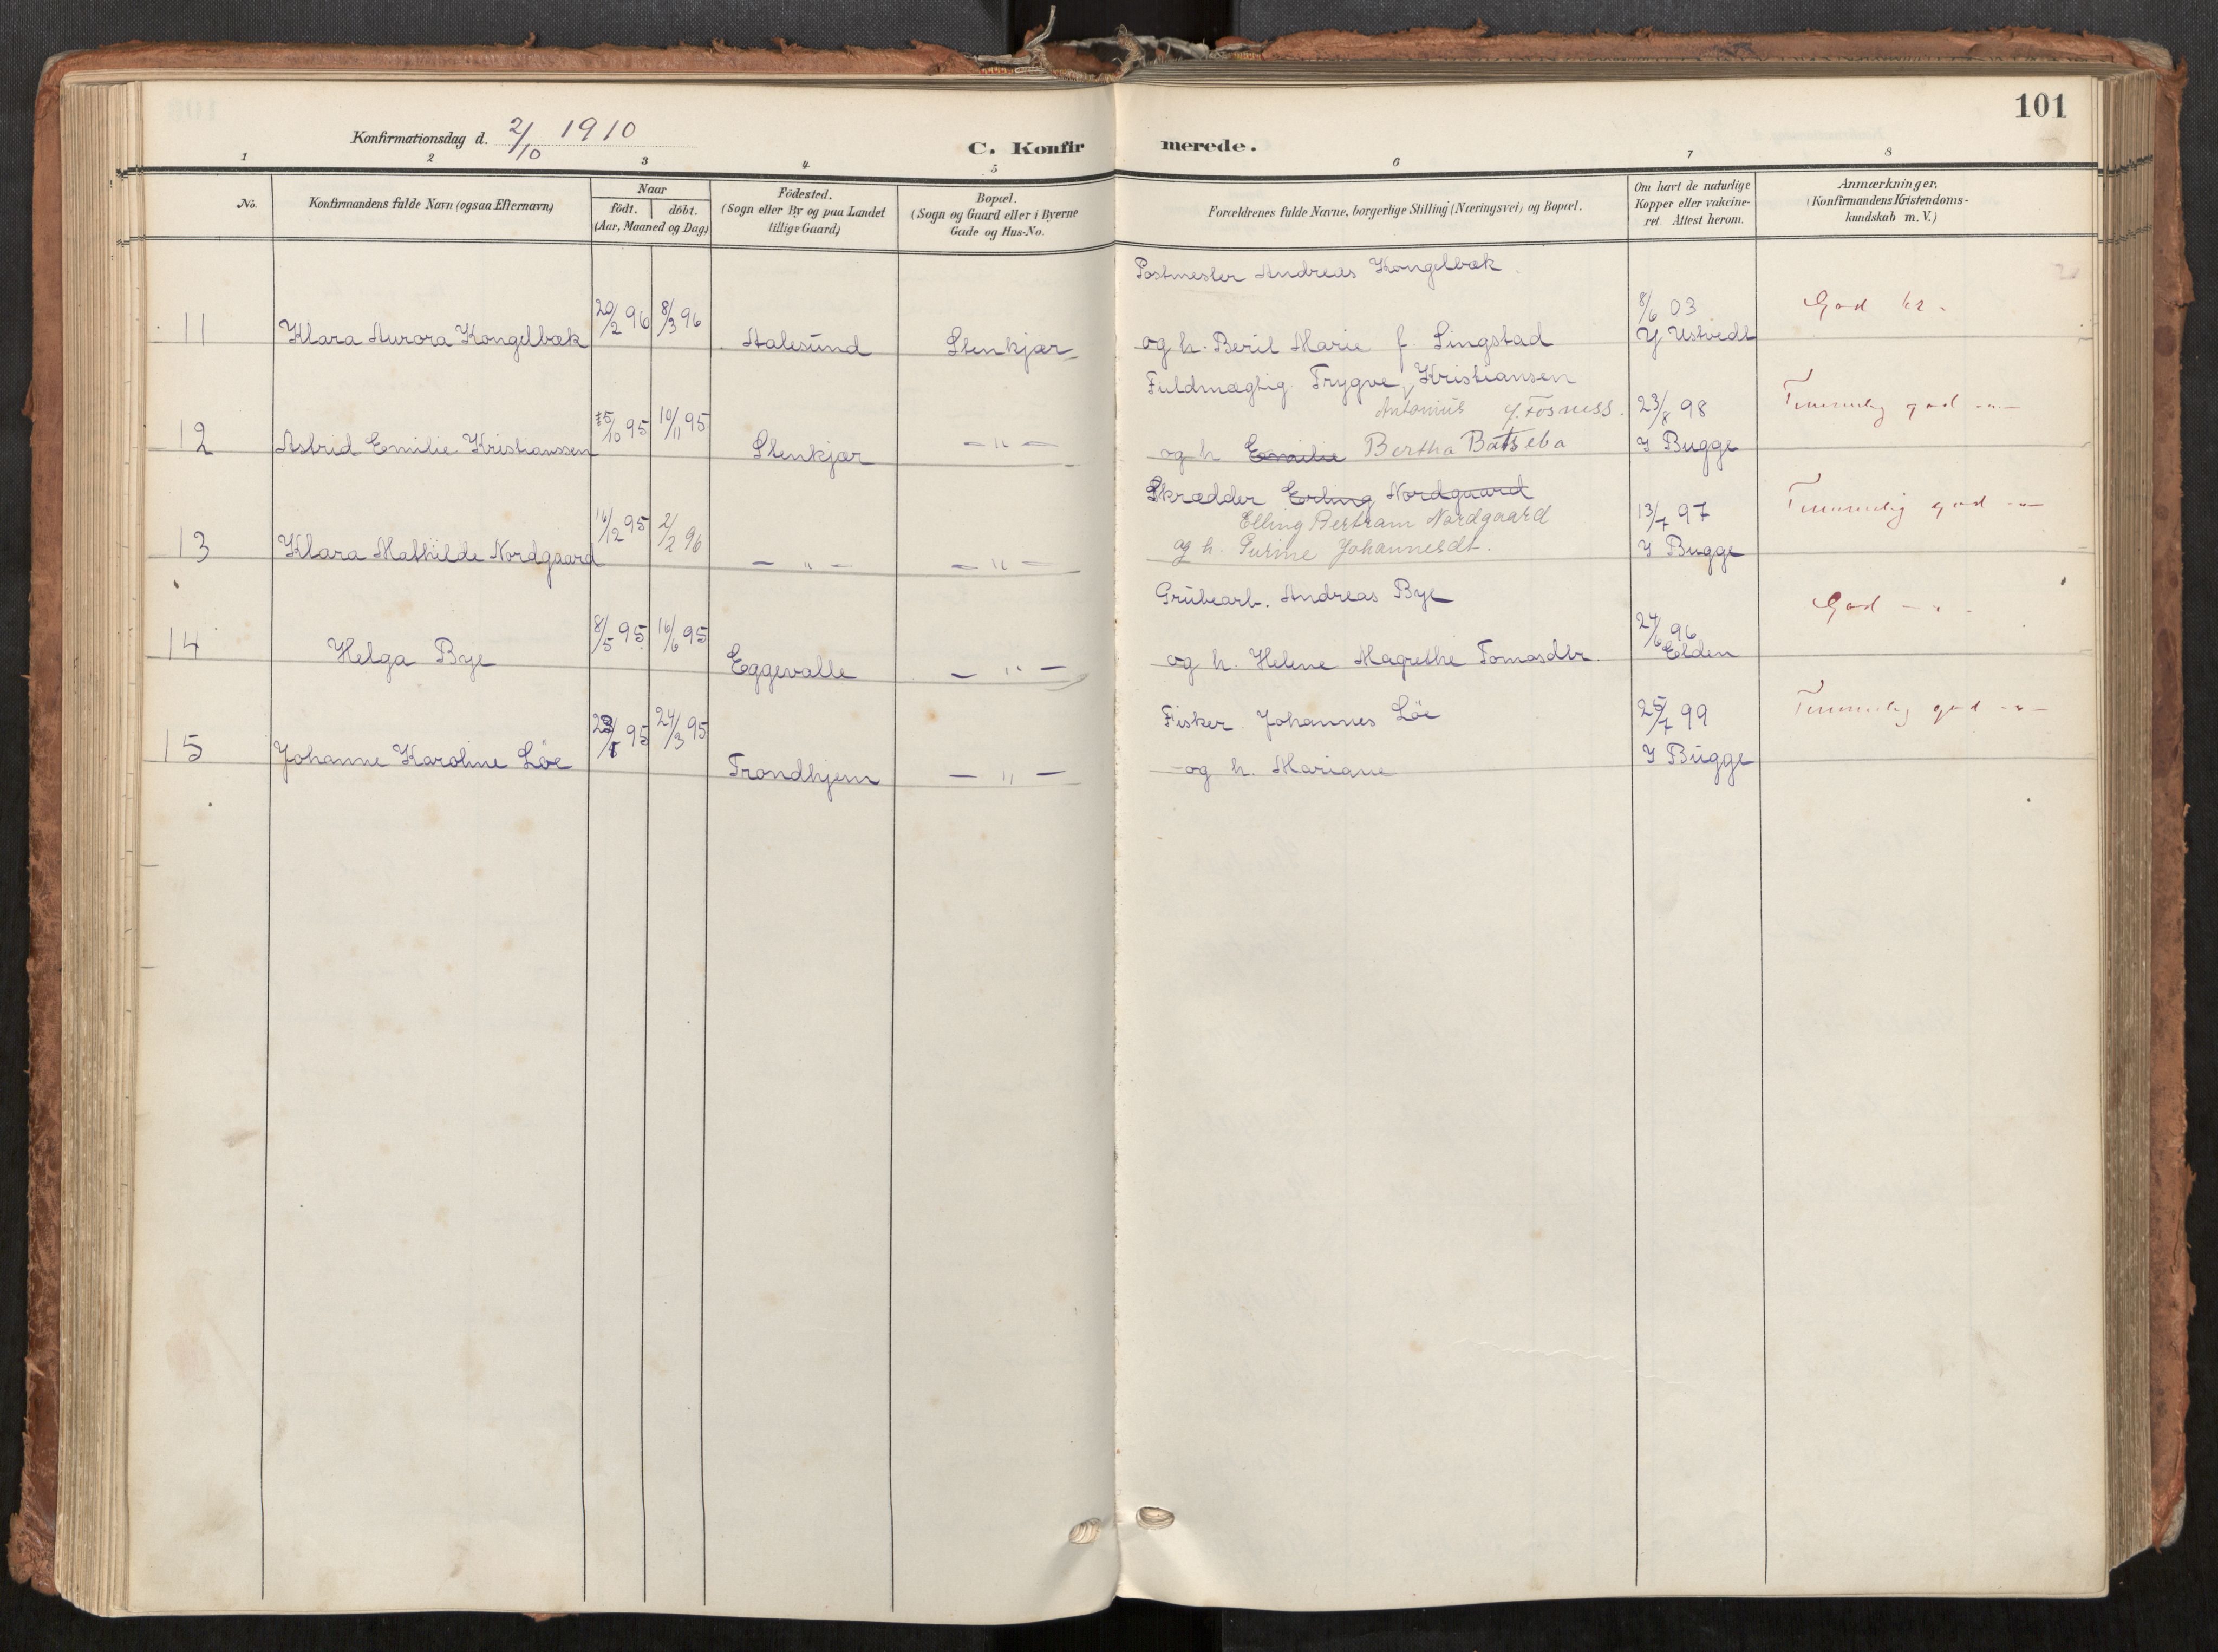 101
Konfirmationsdag d. 2/10 1910
C. Konfirmerede.
1 2 3 4 5 6 7 8
No.
Konfirmandens fulde Navn (ogsaa Efternavn)
Naar
födt. döbt.
(Aar, Maaned og Dag)
Födested.
(Sogn eller By og paa Landet
tillige Gaard)
Bopæl.
(Sogn og Gaard eller i Byerne
Gade og Hus-No.
Forældrenes fulde Navne, borgerlige Stilling (Næringsvei) og Bopæl.
Om havt de naturlige
Kopper eller vakcine-
ret. Attest herom.
Anmærkninger.
(Konfirmandens Kristendoms-
kundskab m. V.)
Postmester Andreas Kongelbæk
11 Klara Aurora Kongelbæk 20/2 96 8/3 96 Aalesund Stenkjær
og h. Beril Marie f. Singstad
8/6 03
Y Ustvedt
God kr.
Fuldmægtig Trygve Kristiansen
Antonius f. Fosness.
12 Astrid Emilie Kristianssen 5/10 95 10/11 95 Stenkjær — " —
og h Emilie Bertha Batseba
23/8 98
I Bugge
Temmelig god —"—
Skrædder Erling Nordgaard
Elling Bertram Nordgaard
13 Klara Mathilde Nordgaard 16/12 95 2/2 96 — " — — " —
og h. Gurine Johannesdt.
13/7 97
I Bugge
Temmelig god —"—
Grubearb. Andreas Bye
14 Helga Bye 8/5 95 16/6 95 Eggevalle — " —
og h. Helene Magrethe Tomasdtr.
24/6 96
Elden
God — " —
Fisker Johannes Löe
15 Johanne Karoline Löe 95 24/3 95 Trondhjem — " —
og h. Mariane
25/7 99
I Bugge
Temmelig god —"—